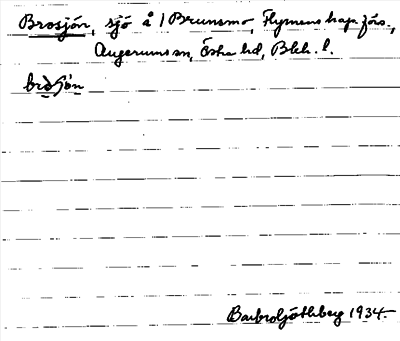 Brosjön, sjö å 1 Brunsmo, Flymens kap. förs.,
Augerums sn, Östra hd, Blek. l.
brosjön
Barbro Ljöthberg 1934.